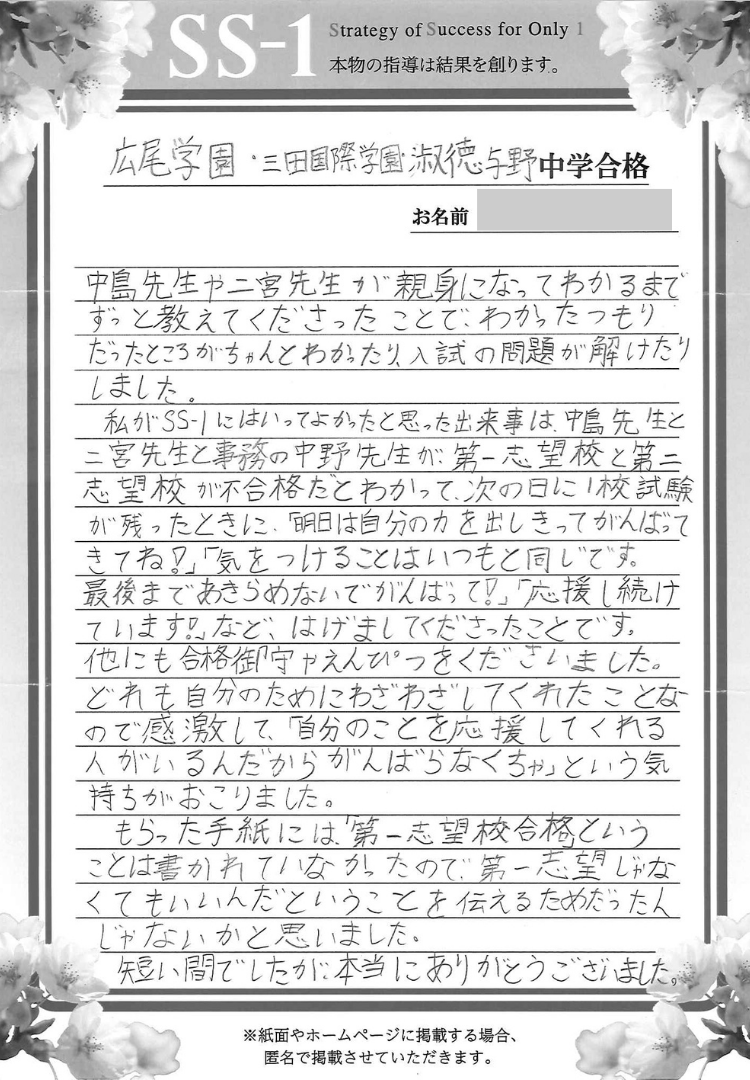 SS-1
Strategy of Success for Only 1
本物の指導は結果を創ります。
広尾学園・三田国際学園・淑徳与野中学合格
お名前
中島先生や二宮先生が親身になってわかるまで
ずっと教えてくださったことで、わかったつもり
だったところがちゃんとわかったり、入試の問題が解けたり
しました。
私がSS-1にはいってよかったと思った出来事は、中島先生と
二宮先生と事務の中野先生が、第一志望校と第二
志望校が不合格だとわかって、次の日に1校試験
が残ったときに、「明日は自分の力を出しきってがんばって
きてね!」「気をつけることはいつもと同じです。
最後まであきらめないでがんばって!」「応援し続け
ています!」など、はげましてくださったことです。
他にも合格御守やえんぴつをくださいました。
どれも自分のためにわざわざしてくれたことな
ので感激して、「自分のことを応援してくれる
人がいるんだからがんばらなくちゃ」という気
持ちがおこりました。
もらった手紙には、「第一志望校合格」という
ことは書かれていなかったので、第一志望じゃな
くてもいいんだということを伝えるためだったん
じゃないかと思いました。
短い間でしたが、本当にありがとうございました。
※紙面やホームページに掲載する場合、
匿名で掲載させていただきます。